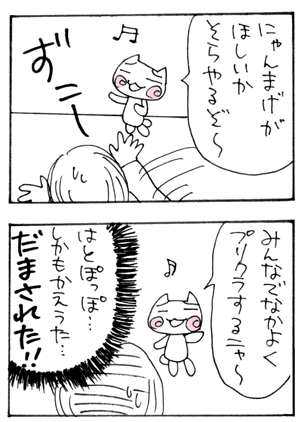 にゃんまげが
ほしいか
そらやるぞ〜
ずこー
みんなでなかよく
プリクラするニャ〜
はとぽっぽ…
しかもかえうた…
だまされた!!